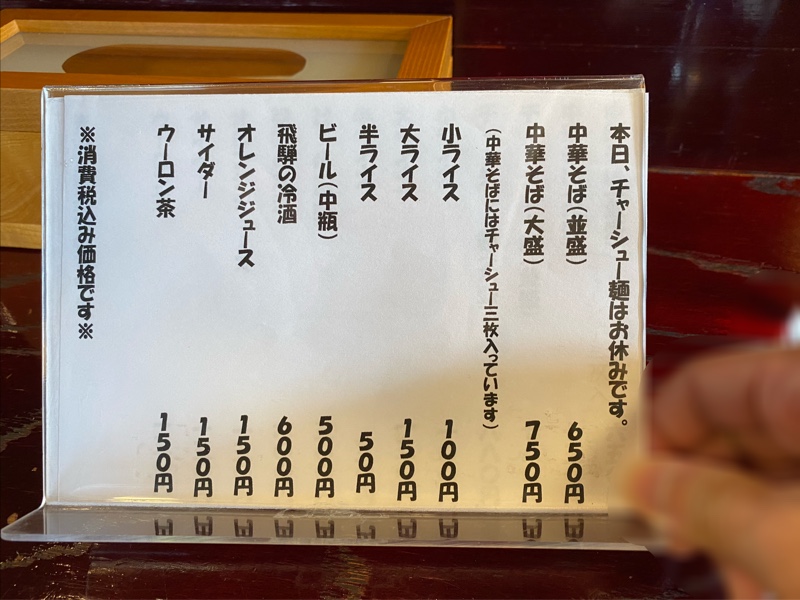 本日、チャーシュー麺はお休みです。
中華そば(並盛) 650円
中華そば(大盛) 750円
(中華そばにはチャーシュー三枚入っています)
小ライス 100円
大ライス 150円
半ライス 50円
ビール(中瓶) 500円
飛騨の冷酒 600円
オレンジジュース 150円
サイダー 150円
ウーロン茶 150円
※消費税込み価格です※